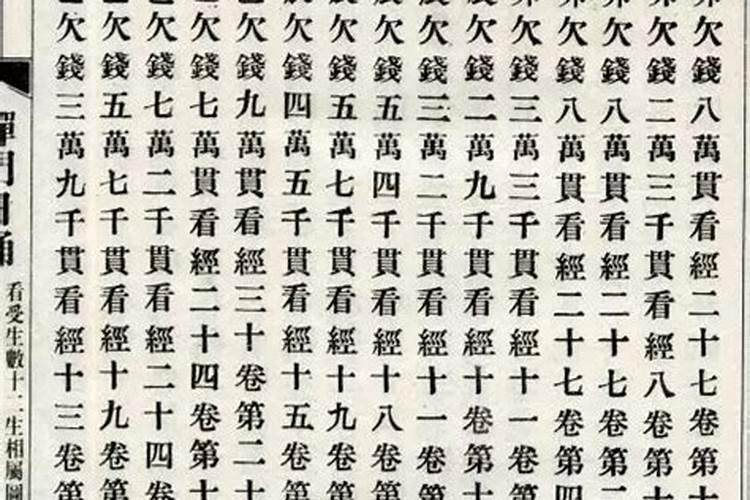 欠錢八萬貫看經二十七卷第十
欠錢二萬三千貫看經八卷第十
欠錢八萬貫看經二十七卷第二
欠錢八萬貫看經二十七卷第四
欠錢三萬三千貫看經十一卷第十
欠錢二萬九千貫看經十卷第十
欠錢三萬二千貫看經十一卷第
欠錢五萬四千貫看經十八卷第
欠錢五萬七千貫看經十九卷第
欠錢四萬五千貫看經十五卷第
欠錢九萬貫看經三十卷第二十
欠錢七萬貫看經二十四卷第十
欠錢七萬二千貫看經二十四卷
欠錢五萬七千貫看經十九卷第
欠錢三萬九千貫看經十三卷第
禪門日誦
看受生數十二生相屬圖